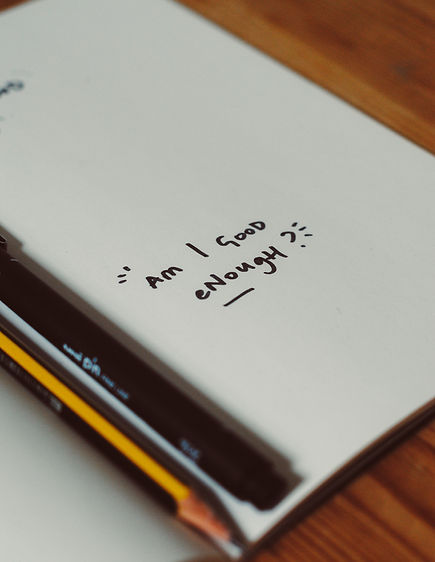 AM I GOOD
eNougH?
uni